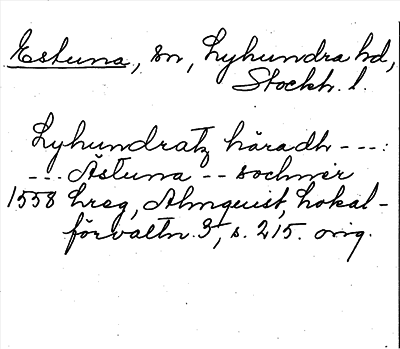 Estuna, sn, Lyhundra hd,
Stockh. l.
Lyhundratz häradh ---:
--- Åstuna -- sochner
1558 hreg, Almquist, Lokal-
förvaltn. 3, s. 215. orig.